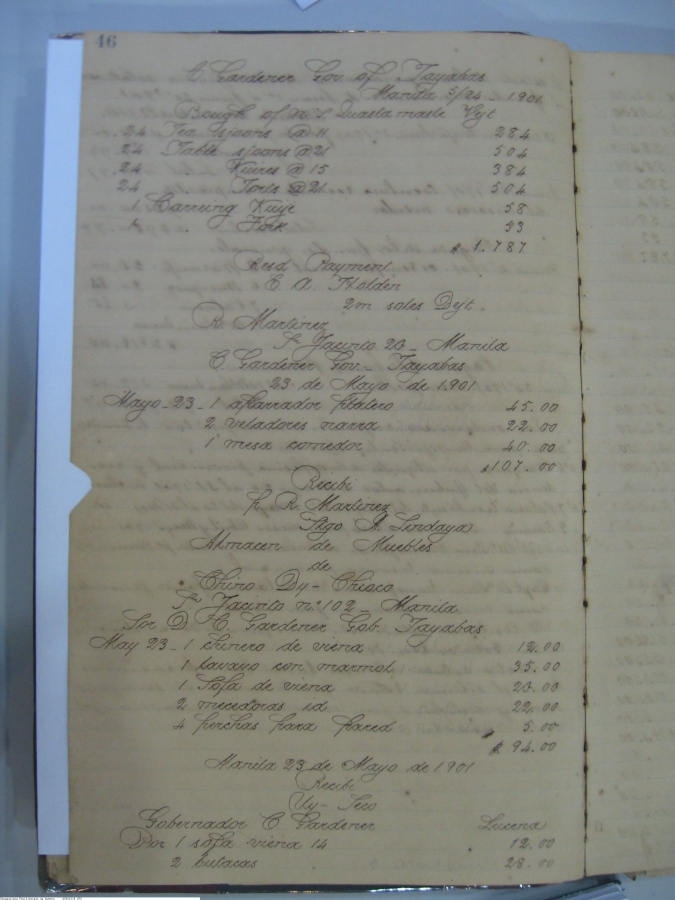 46
C. Gardener Gov. of Tayabas
Manila 5/24 - 1901
Bough of n. S Quastamaste Dejt
24 Tea sjoons @ 11 284
24 Table sjoons @ 21 504
24 Knires @ 15 384
24 Forts @ 21 504
1 Carrung Knije 58
1 " Fork 53
$ 1.787
Resd Payment
C. A. Holden
2m sales Dejt.
R. Martinez
Sn. Jacinto 20 - Manila
C. Gardener Gov. - Tayabas
23 de Mayo de 1.901
Mayo - 23 - 1 aparrador platero 45.00
2 veladores narra 22.00
1 mesa comedor 40.00
$ 107.00
Recibi
p. R. Martinez
Stgo A. Lindaya
Almacen de Muebles
de
Chino Dy - Chioco
Sn. Jacinto no. 102 - Manila
Sor. D. C. Gardener Gob. Tayabas
May 23 - 1 chinero de viena 12.00
1 lavavo con marmol 35.00
1 Sofa de viena 20.00
2 mecedoras id 22.00
4 perchas para pared 5.00
$ 94.00
Manila 23 de Mayo de 1.901
Recibi
Uy - Seco
Gobernador C Gardener Lucena
Por 1 sofa viena 14 12.00
2 butacas 28.00